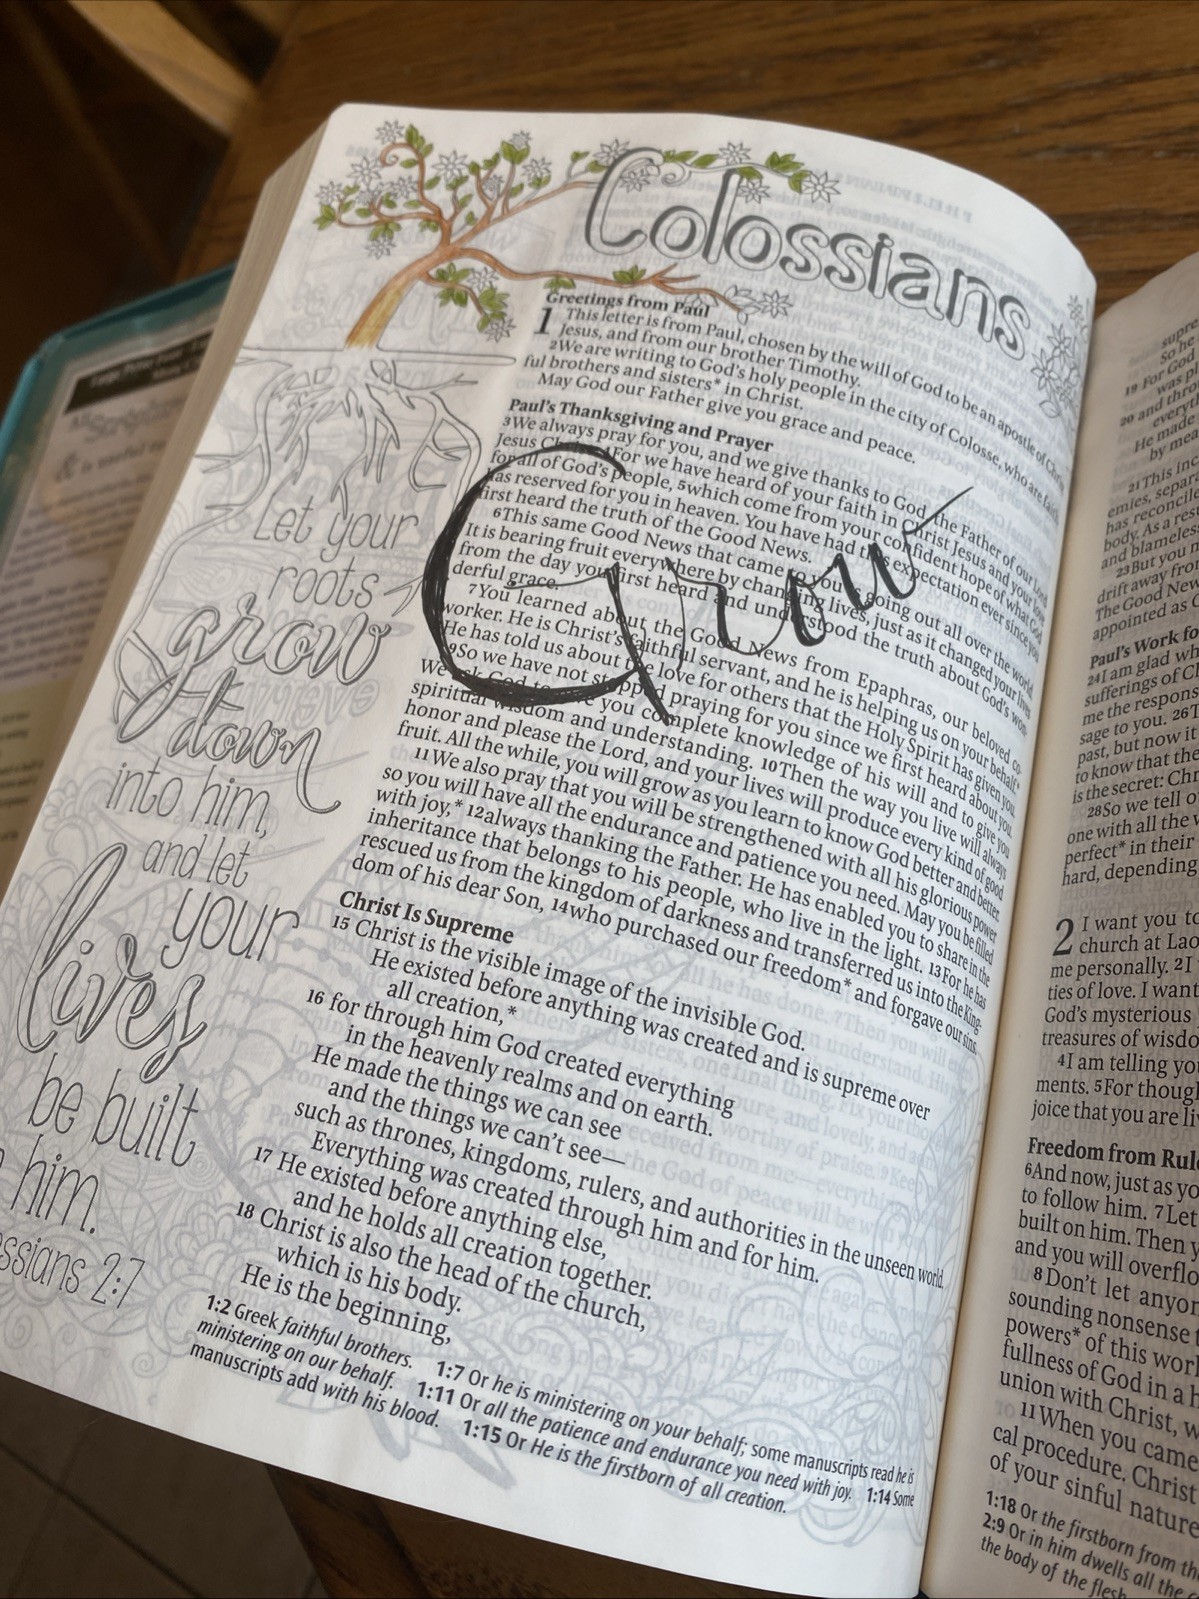 Colossians
Greetings from Paul
1 This letter is from Paul, chosen by the will of God to be an apostle of Christ
Jesus, and from our brother Timothy.
2We are writing to God's holy people in the city of Colosse, who are faith
ful brothers and sisters* in Christ.
May God our Father give you grace and peace.
Paul's Thanksgiving and Prayer
3We always pray for you, and we give thanks to God, the Father of our Lord
Jesus 4For we have heard of your faith in Christ Jesus and your love
for all of God's people, 5which come from your confident hope of what God
has reserved for you in heaven. You have had this expectation ever since you
first heard the truth of the Good News.
6This same Good News that came to you is going out all over the world.
It is bearing fruit everywhere by changing lives, just as it changed your lives
from the day you first heard and understood the truth about God's won-
derful grace.
7You learned about the Good News from Epaphras, our beloved co-
worker. He is Christ's faithful servant, and he is helping us on your behalf.*
He has told us about the love for others that the Holy Spirit has given you.
9So we have not stopped praying for you since we first heard about you.
We ask God to give you complete knowledge of his will and to give you
spiritual wisdom and understanding. 10Then the way you live will always
honor and please the Lord, and your lives will produce every kind of good
fruit. All the while, you will grow as you learn to know God better and better.
11We also pray that you will be strengthened with all his glorious power
so you will have all the endurance and patience you need. May you be filled
with joy,* 12always thanking the Father. He has enabled you to share in the
inheritance that belongs to his people, who live in the light. 13For he has
rescued us from the kingdom of darkness and transferred us into the King-
dom of his dear Son, 14who purchased our freedom* and forgave our sins.
Grow
Christ Is Supreme
15 Christ is the visible image of the invisible God.
He existed before anything was created and is supreme over
all creation,*
16 for through him God created everything
in the heavenly realms and on earth.
He made the things we can see
and the things we can't see—
such as thrones, kingdoms, rulers, and authorities in the unseen world.
Everything was created through him and for him.
17 He existed before anything else,
and he holds all creation together.
18 Christ is also the head of the church,
which is his body.
He is the beginning,
1:2 Greek faithful brothers. 1:7 Or he is ministering on your behalf; some manuscripts read he is
ministering on our behalf. 1:11 Or all the patience and endurance you need with joy. 1:14 Some
manuscripts add with his blood. 1:15 Or He is the firstborn of all creation.
Let your
roots
grow
down
into him,
and let
your
lives
be built
him.
ssians 2:7
So he
19 For God
was pl
20 and thro
everyth
He made
by mea
21This inc
emies, separa
has reconcile
body. As a res
and blameles
23But you m
drift away from
The Good New
appointed as C
Paul's Work fo
24I am glad wh
sufferings of Ch
me the respons
sage to you. 26T
past, but now it
to know that the
is the secret: Chr
28So we tell o
one with all the w
perfect* in their
hard, depending
2 I want you to
church at Lao
me personally. 2I
ties of love. I want
God's mysterious
treasures of wisdo
4I am telling you
ments. 5For though
joice that you are liv
Freedom from Rule
6And now, just as yo
to follow him. 7Let
built on him. Then y
and you will overflo
8Don't let anyon
sounding nonsense
powers* of this worl
fullness of God in a h
union with Christ, w
11When you came
cal procedure. Christ
of your sinful nature
1:18 Or the firstborn from th
2:9 Or in him dwells all the c
the body of the flesh.